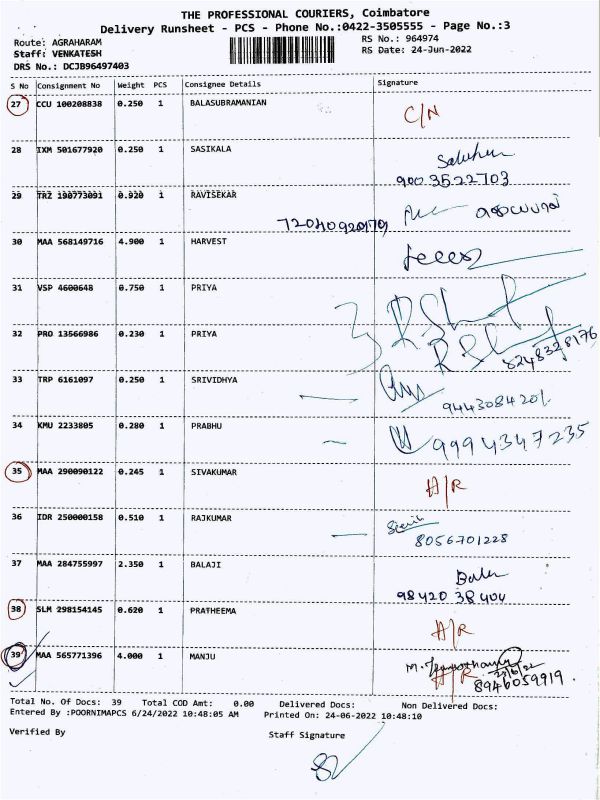 THE PROFESSIONAL COURIERS, Coimbatore
Delivery Runsheet - PCS - Phone No.:0422-3505555 - Page No.:3
Route: AGRAHARAM
RS No.: 964974
Staff: VENKATESH
RS Date: 24-Jun-2022
DRS No.: DCJB96497403
S No Consignment No Weight PCS Consignee Details Signature
27 CCU 100208838 0.250 1 BALASUBRAMANIAN C/N
28 IXM 501677920 0.250 1 SASIKALA
9003522703
29 TRZ 190773091 0.920 1 RAVISEKAR
30 MAA 568149716 4.900 1 HARVEST
31 VSP 4600648 0.750 1 PRIYA
32 PRO 13566986 0.230 1 PRIYA
8248328176
33 TRP 6161097 0.250 1 SRIVIDHYA
34 KMU 2233805 0.280 1 PRABHU 9994347235
35 MAA 290090122 0.245 1 SIVAKUMAR A/R
36 IDR 250000158 0.510 1 RAJKUMAR
8056701228
37 MAA 284755997 2.350 1 BALAJI
98420 38404
38 SLM 298154145 0.620 1 PRATHEEMA A/R
39 MAA 565771396 4.000 1 MANJU A/R
8946059919
Total No. Of Docs: 39 Total COD Amt: 0.00 Delivered Docs: Non Delivered Docs:
Entered By :POORNIMAPCS 6/24/2022 10:48:05 AM Printed On: 24-06-2022 10:48:10
Verified By Staff Signature